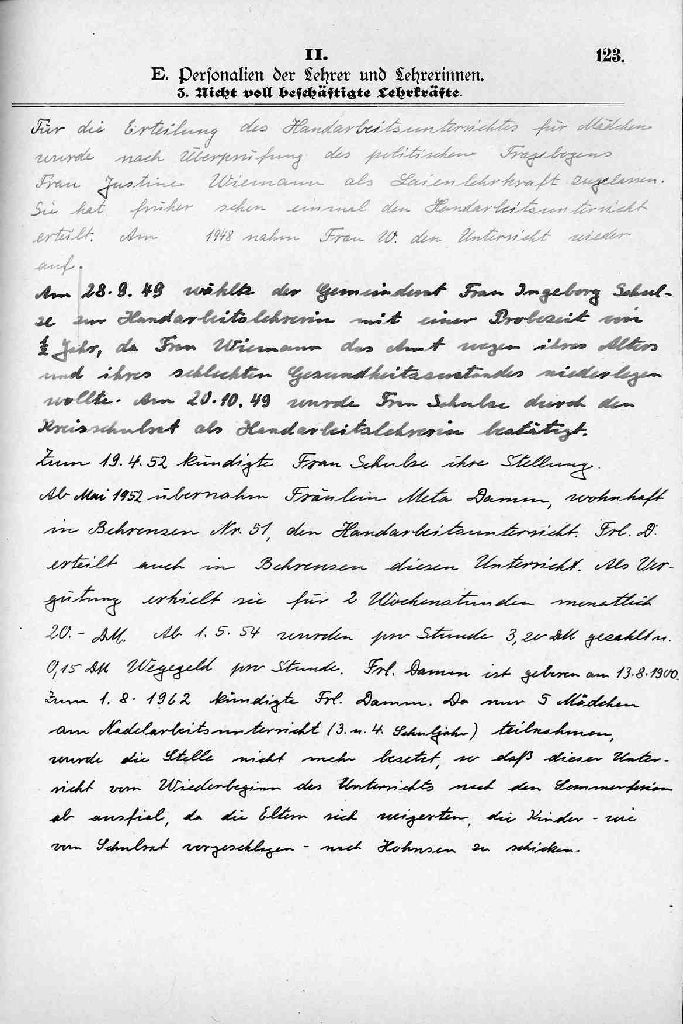 II.
123.
E. Personalien der Lehrer und Lehrerinnen.
3. Nicht voll beschäftigte Lehrkräfte.
Für die Erteilung des Handarbeitsunterrichtes für Mädchen
wurde nach Überprüfung des politischen Fragebogens
Frau Justine Wiemann als Laienlehrkraft zugelassen.
Sie hat früher schon einmal den Handarbeitsunterricht
erteilt. Am 1948 nahm Frau W. den Unterricht wieder
auf.
Am 28.9.49 wählte der Gemeinderat Frau Ingeborg Schul-
ze zur Handarbeitslehrerin mit einer Probezeit von
½ Jahr, da Frau Wiemann das Amt wegen ihres Alters
und ihres schlechten Gesundheitszustandes niederlegen
wollte. Am 20.10.49 wurde Frau Schulze durch den
Kreisschulrat als Handarbeitslehrerin bestätigt.
Zum 19.4.52 kündigte Frau Schulze ihre Stellung.
Ab Mai 1952 übernahm Fräulein Meta Damm, wohnhaft
in Behrensen Nr. 51, den Handarbeitsunterricht. Frl. D.
erteilt auch in Behrensen diesen Unterricht. Als Ver-
gütung erhielt sie für 2 Wochenstunden monatlich
20.- DM. Ab 1.5.54 wurden pro Stunde 3,20 DM gezahlt u.
0,15 DM Wegegeld pro Stunde. Frl. Damm ist geboren am 13.8.1900.
Zum 1.8.1962 kündigte Frl. Damm. Da nur 5 Mädchen
am Nadelarbeitsunterricht (3. u. 4. Schuljahr) teilnahmen,
wurde die Stelle nicht mehr besetzt, so daß dieser Unter-
richt vom Wiederbeginn des Unterrichts nach den Sommerferien
ab ausfiel, da die Eltern sich weigerten, die Kinder - wie
vom Schulrat vorgeschlagen - nach Hohnsen zu schicken.